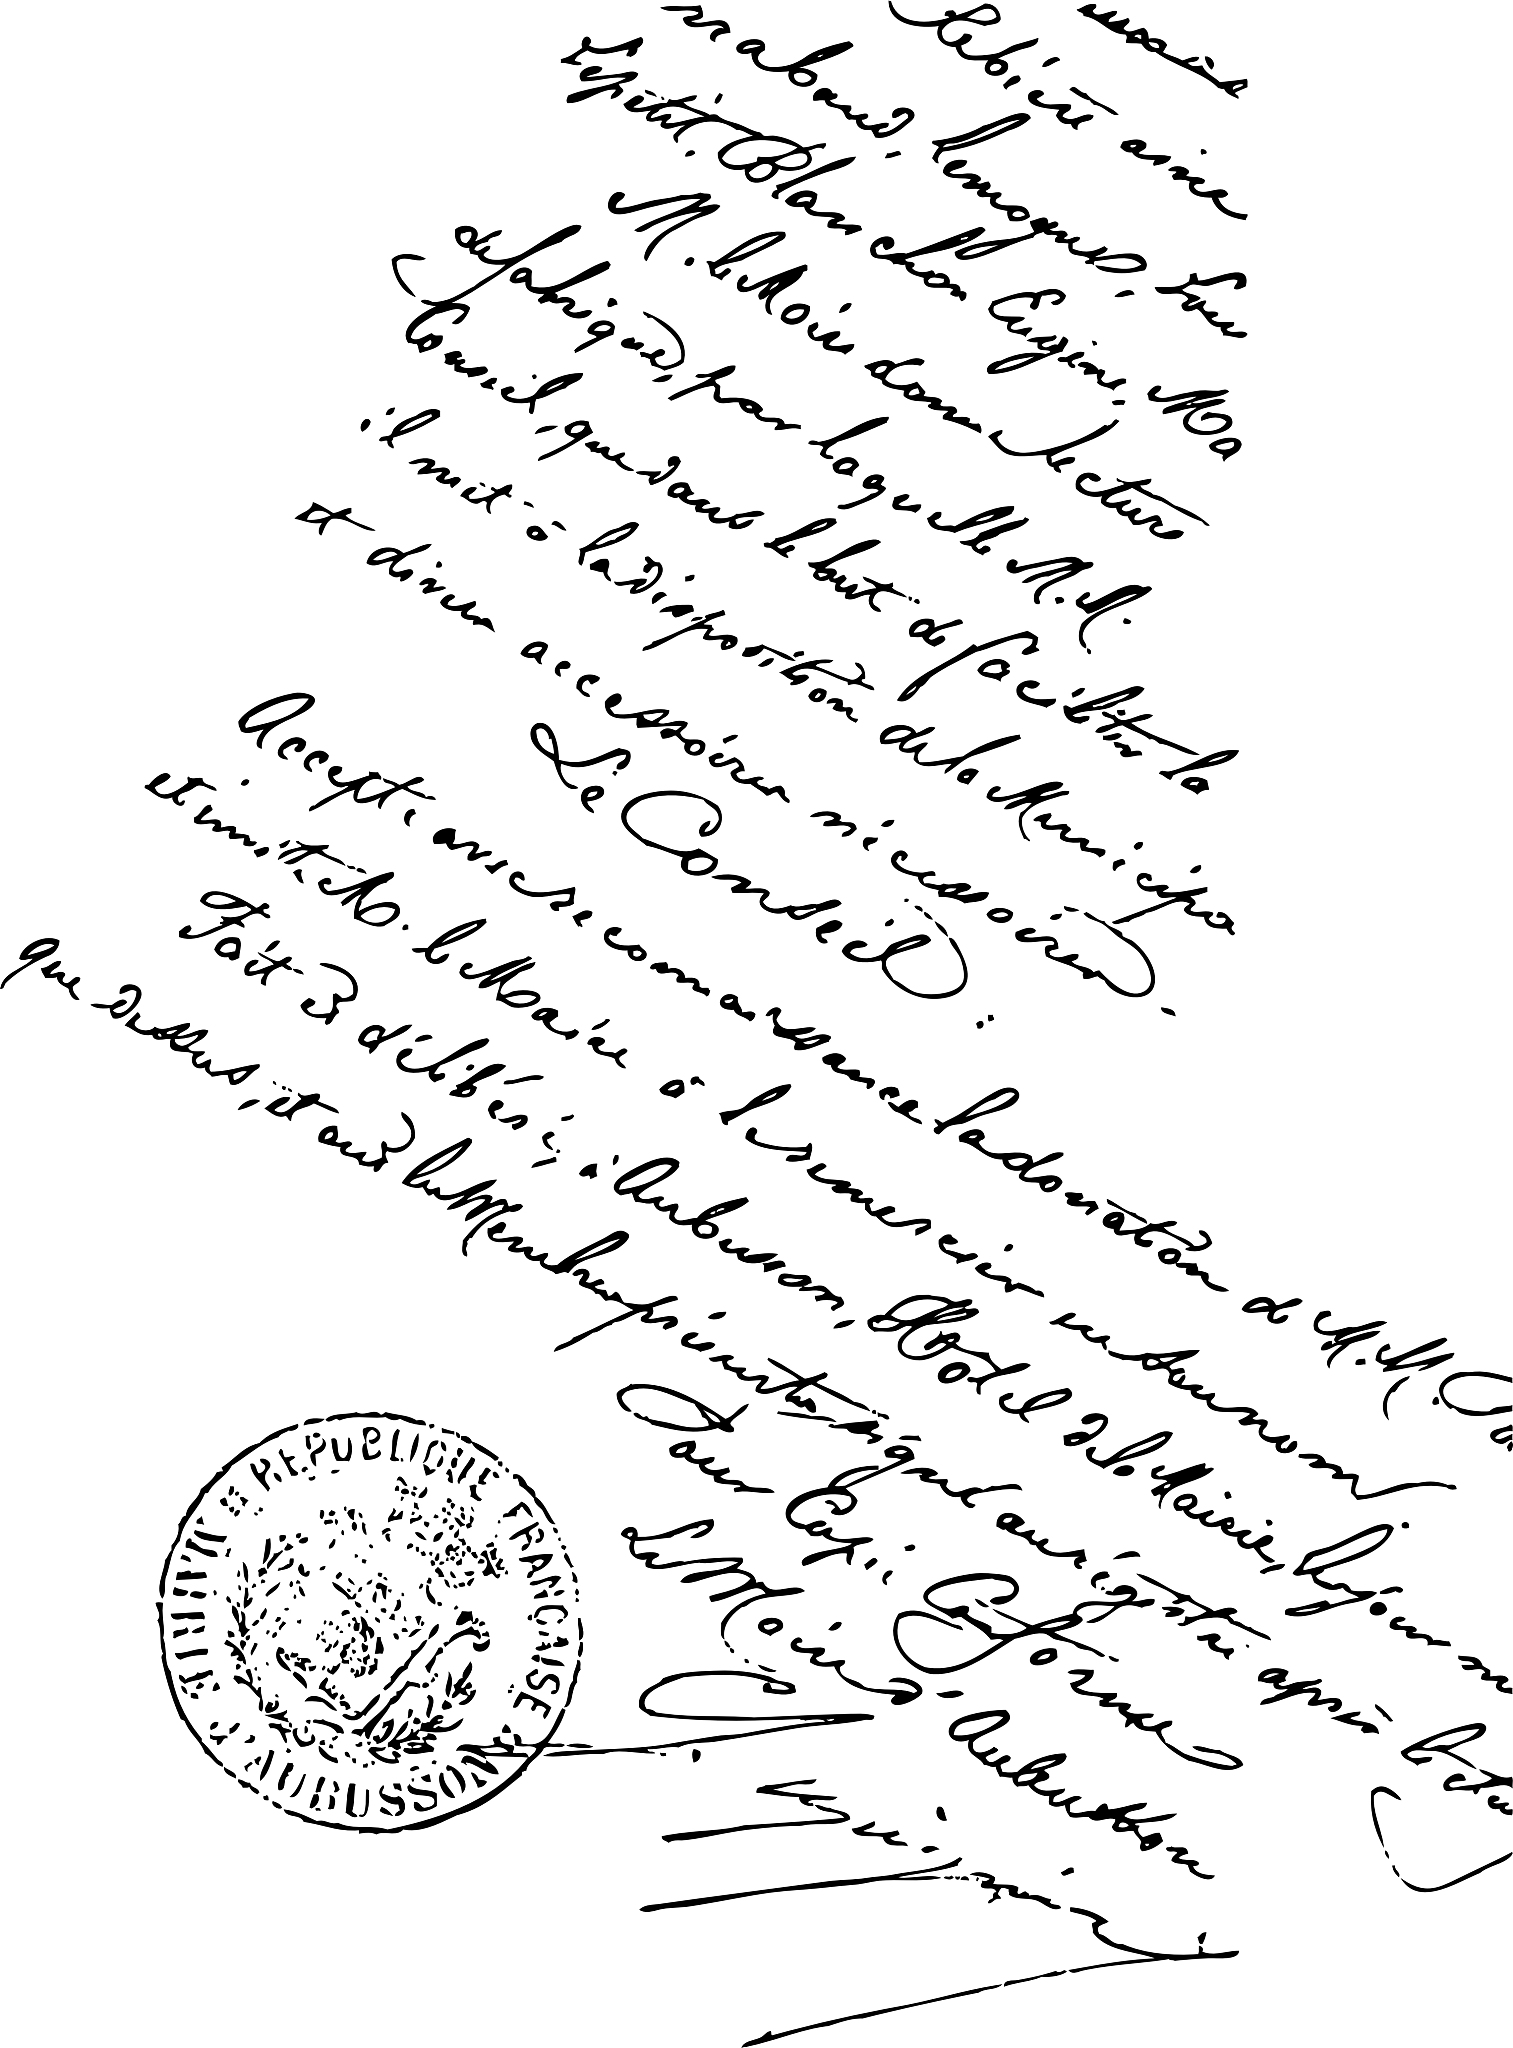 Rebière aîné
nabaud, Lemoyne, Lou
Lepetit, Blanchon Eugène, Ma
M. le Maire donne lecture
de fabrique, par laquelle M.M.
Conseil, que dans le but de faciliter la
il met à la disposition de la Municipa
et divers accessoires nécessaires.
Le Conseil,
Accepte avec reconnaissance la donation de M.M.
et invite M. le Maire à les remercier en son nom
Fait & délibéré à Aubusson, Hôtel de la Mairie, les jour, m
que dessus, et ont les Membres présents signé au registre après lectu
Pour Copie Conforme
Le Maire d'Aubusson
MAIRIE D'AUBUSSON
REPUBLIQUE FRANÇAISE